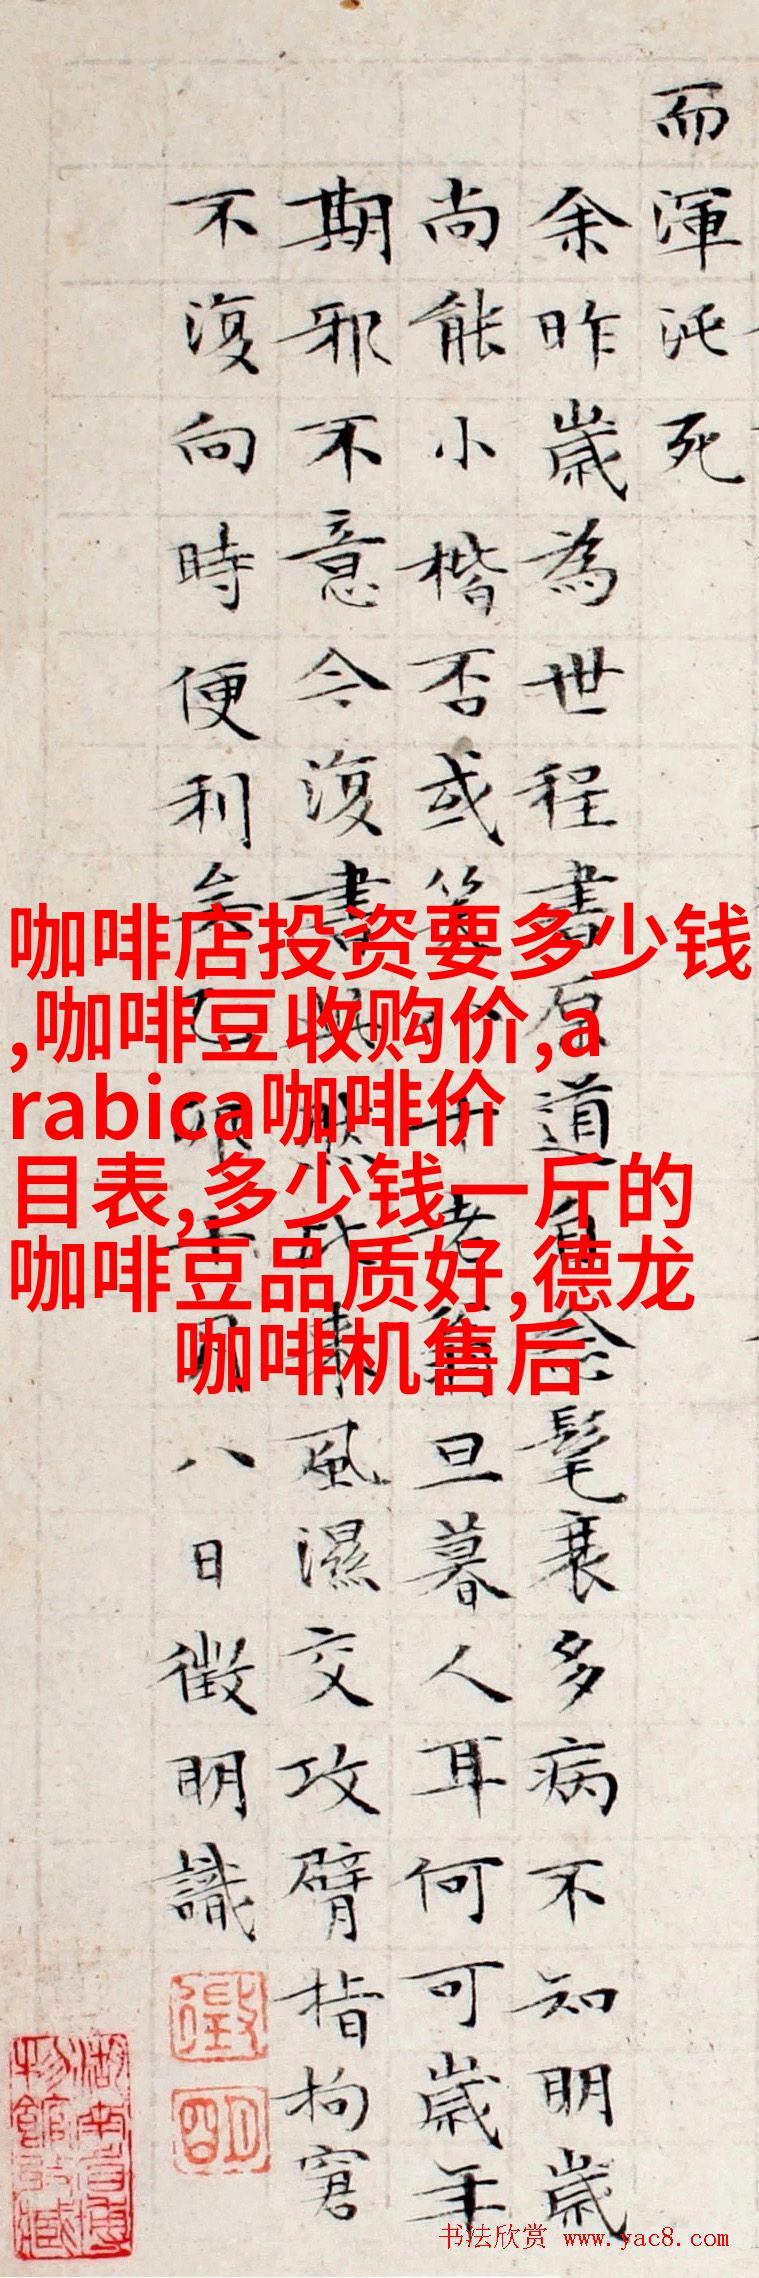 而渾沌死
余昨歲為世程書原道自念髦衰多病不知明歲
尚能小楷否或笑八十老翁旦暮人耳何可歲年
期邪不意今復書與然比來風濕交攻臂指拘窘
不復向時便利矣己月八日徵明識
咖啡店投资要多少钱
,咖啡豆收购价,a
rabica咖啡价
目表,多少钱一斤的
咖啡豆品质好,德龙
咖啡机售后
徵
明
湖南省博
物館收藏
书法欣赏 www.yac8.com